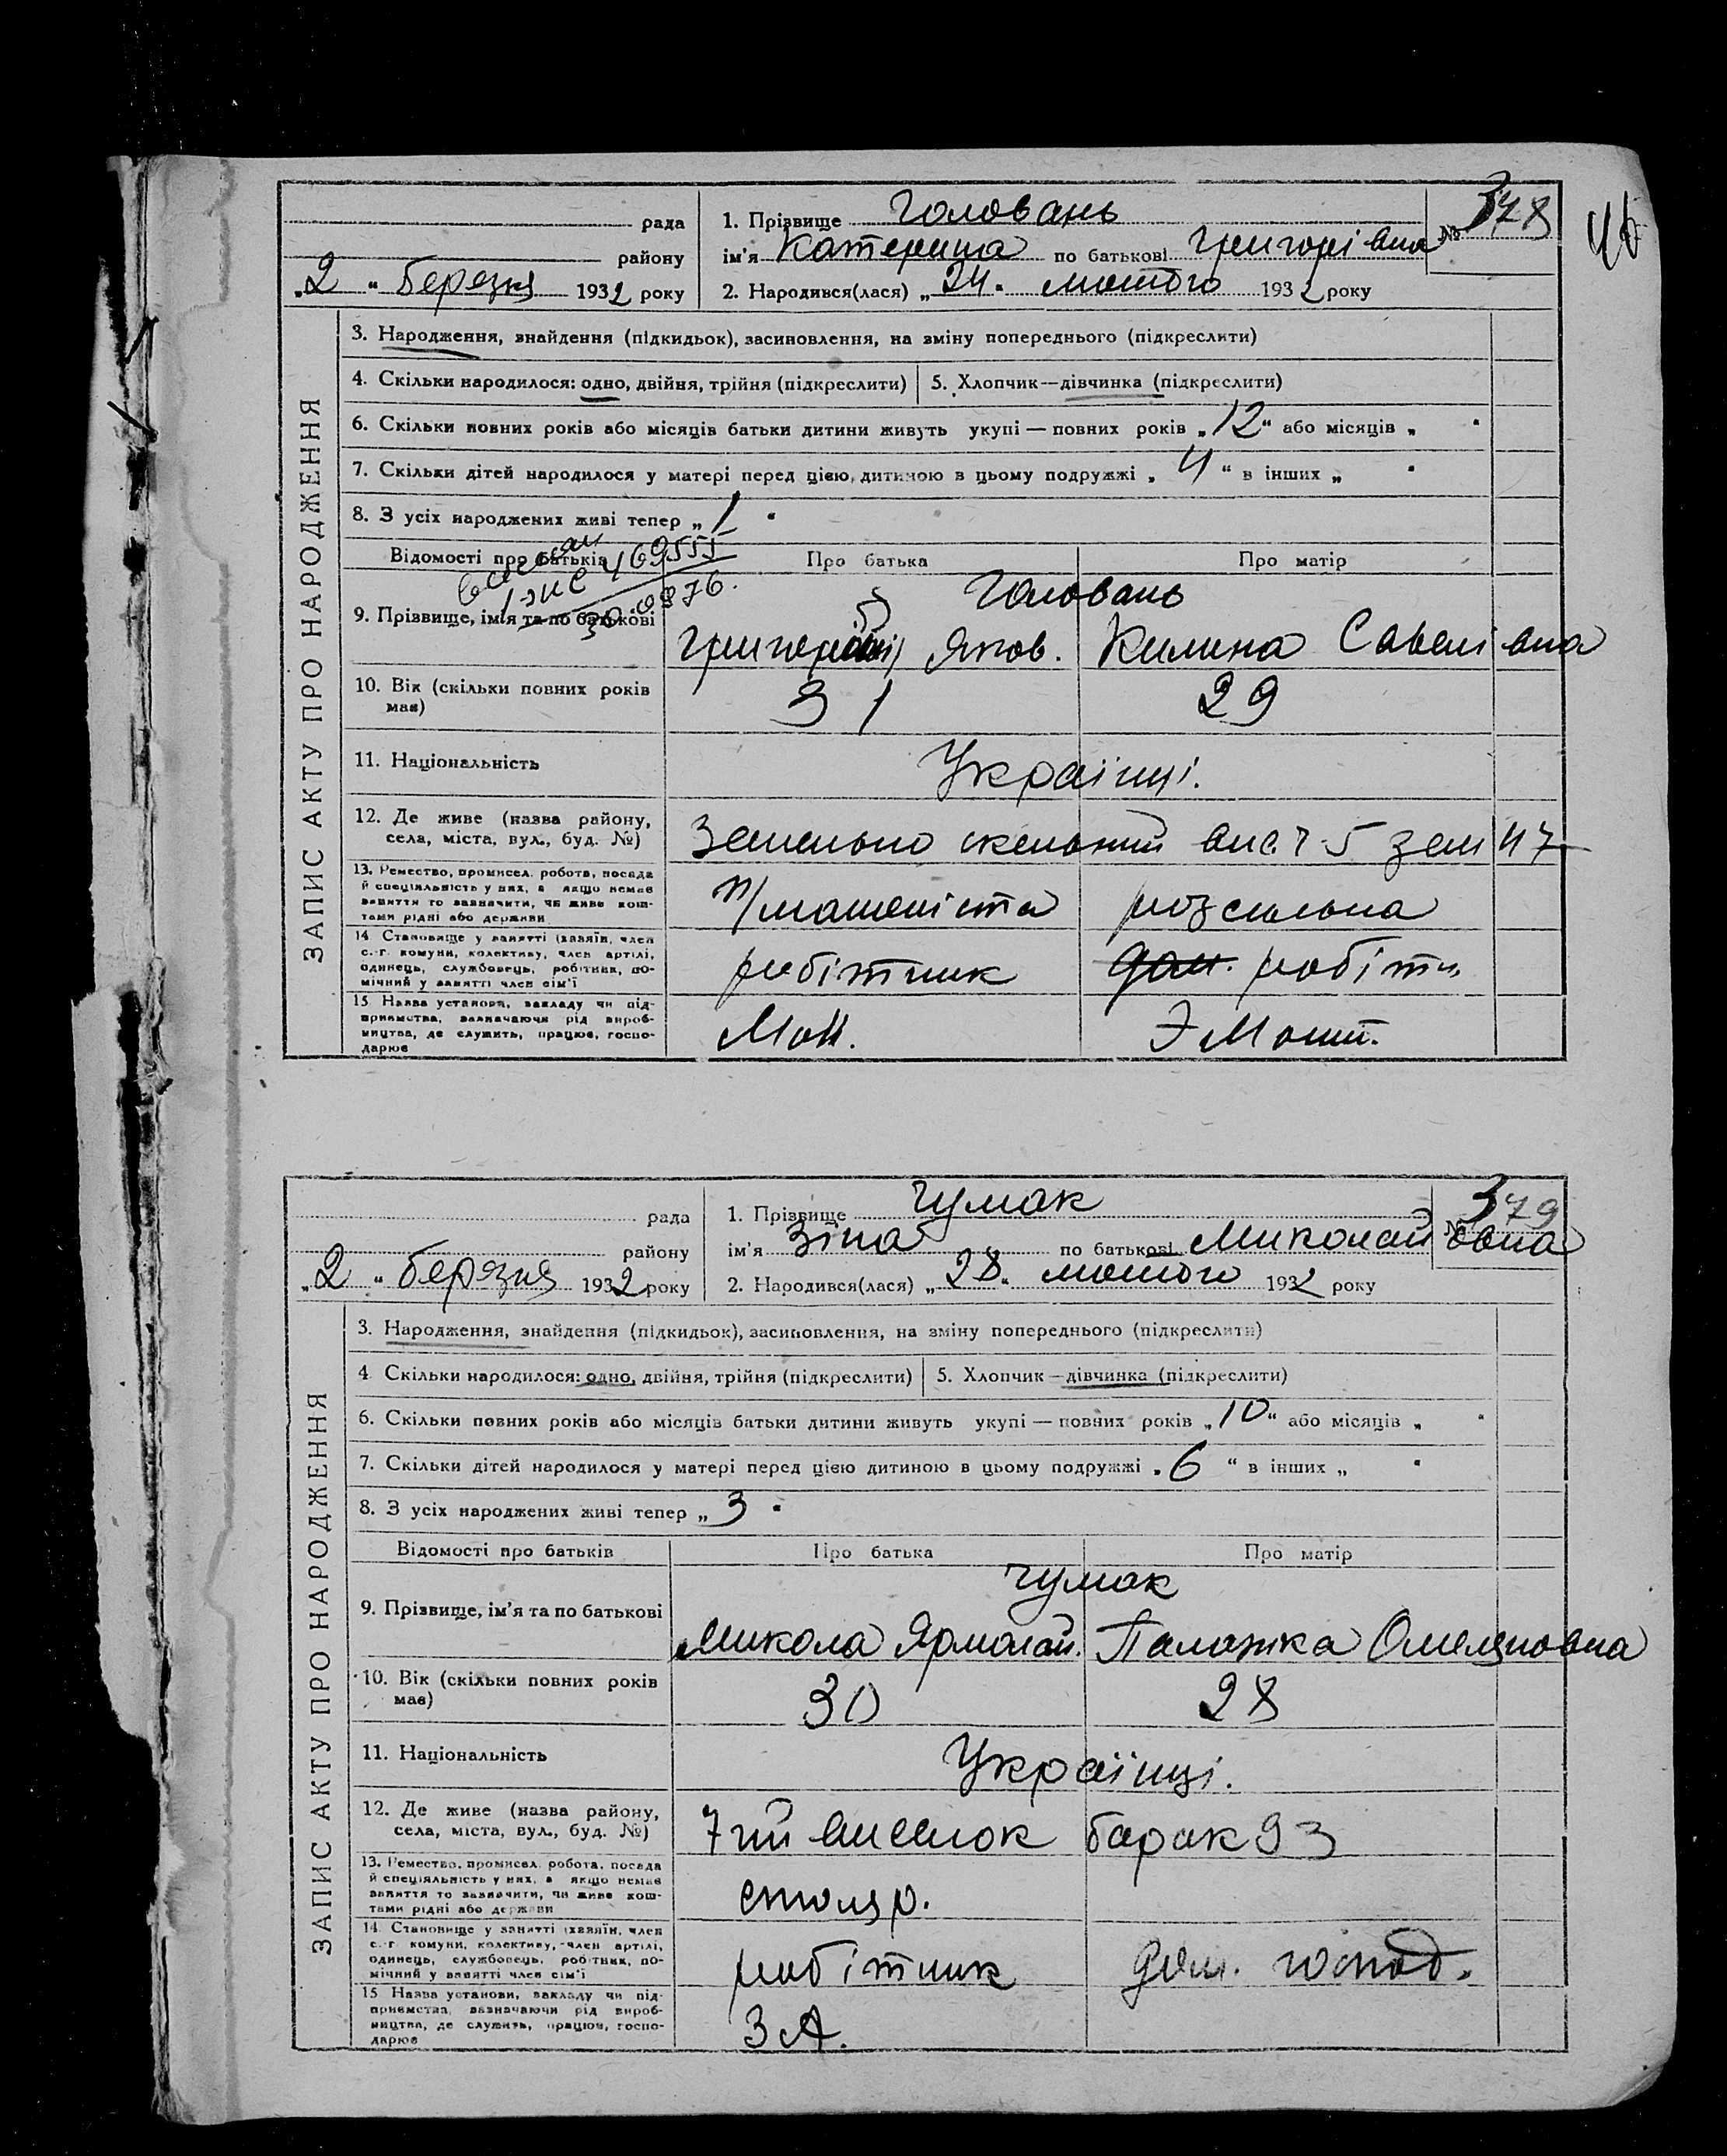 46
рада
району
„2“ березня 1932 року
1. Прізвище Головань
ім'я Катерина по батькові Григорівна
№ 378
2. Народився(лася) „24“ лютого 1932 року
ЗАПИС АКТУ ПРО НАРОДЖЕННЯ
3. Народження, знайдення (підкидьок), засиновлення, на зміну попереднього (підкреслити)
4. Скільки народилося: одно, двійня, трійня (підкреслити) 5. Хлопчик—дівчинка (підкреслити)
6. Скільки повних років або місяців батьки дитини живуть укупі — повних років „12“ або місяців „ “
7. Скільки дітей народилося у матері перед цією дитиною в цьому подружжі „4“ в інших „ “
8. З усіх народжених живі тепер „1“
Відомості про батьків Про батька Про матір
469555
9. Прізвище, ім'я та по батькові
Головань
Яков. Килина Савелівна
10. Вік (скільки повних років має) 31 29
11. Національність Українці.
12. Де живе (назва району, села, міста, вул., буд. №) 5 зем 47
13. Ремество, промисел, робота, посада й спеціяльність у них, а якщо немає заняття то зазначити, чи живе коштами рідні або держави
п/машиніста розсильна
14. Становище у занятті (хазяїн, член с.-г. комуни, колективу, член артілі, одинець, службовець, робітник, помічний у занятті член сім'ї
робітник дом. робітн
15. Назва установи, закладу чи підприємства, зазначаючи рід виробництва, де служить, працює, господарює
рада
району
„2“ березня 1932 року
1. Прізвище Чумак
ім'я Зіна по батькові Миколайовна
№ 379
2. Народився(лася) „28“ лютого 1932 року
ЗАПИС АКТУ ПРО НАРОДЖЕННЯ
3. Народження, знайдення (підкидьок), засиновлення, на зміну попереднього (підкреслити)
4 Скільки народилося: одно, двійня, трійня (підкреслити) 5. Хлопчик—дівчинка (підкреслити)
6. Скільки повних років або місяців батьки дитини живуть укупі — повних років „10“ або місяців „ “
7. Скільки дітей народилося у матері перед цією дитиною в цьому подружжі „6“ в інших „ “
8. З усіх народжених живі тепер „3“
Відомості про батьків Про батька Про матір
9. Прізвище, ім'я та по батькові
Чумак
Микола Ярмолай. Палажка Омеляновна
10. Вік (скільки повних років має) 30 28
11. Національність Українці.
12. Де живе (назва району, села, міста, вул., буд. №) 7ий виселок барак 93
13. Ремество, промисел, робота, посада й спеціяльність у них, а якщо немає заняття то зазначити, чи живе коштами рідні або держави
столяр.
14. Становище у занятті (хазяїн, член с.-г. комуни, колективу, член артілі, одинець, службовець, робітник, помічний у занятті член сім'ї
робітник дом. господ.
15 Назва установи, закладу чи підприємства, зазначаючи рід виробництва, де служить, працює, господарює
ЗА.